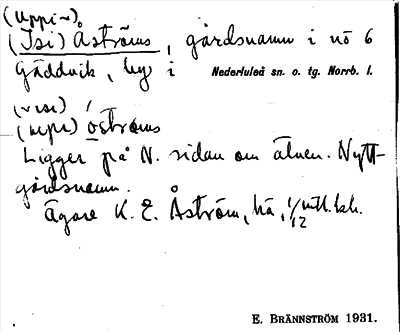 (uppi~)
(Isi) Åströms, gårdsnamn i nö 6
Gäddvik, by i Nederluleå sn. o. tg. Norrb. l.
(visi)
(uppi) óströms
Ligger på N. sidan om älven. Nytt-
gårdsnamn.
Ägare K. E. Åström, ha, 1/12 mtl.
E. BRÄNNSTRÖM 1931.